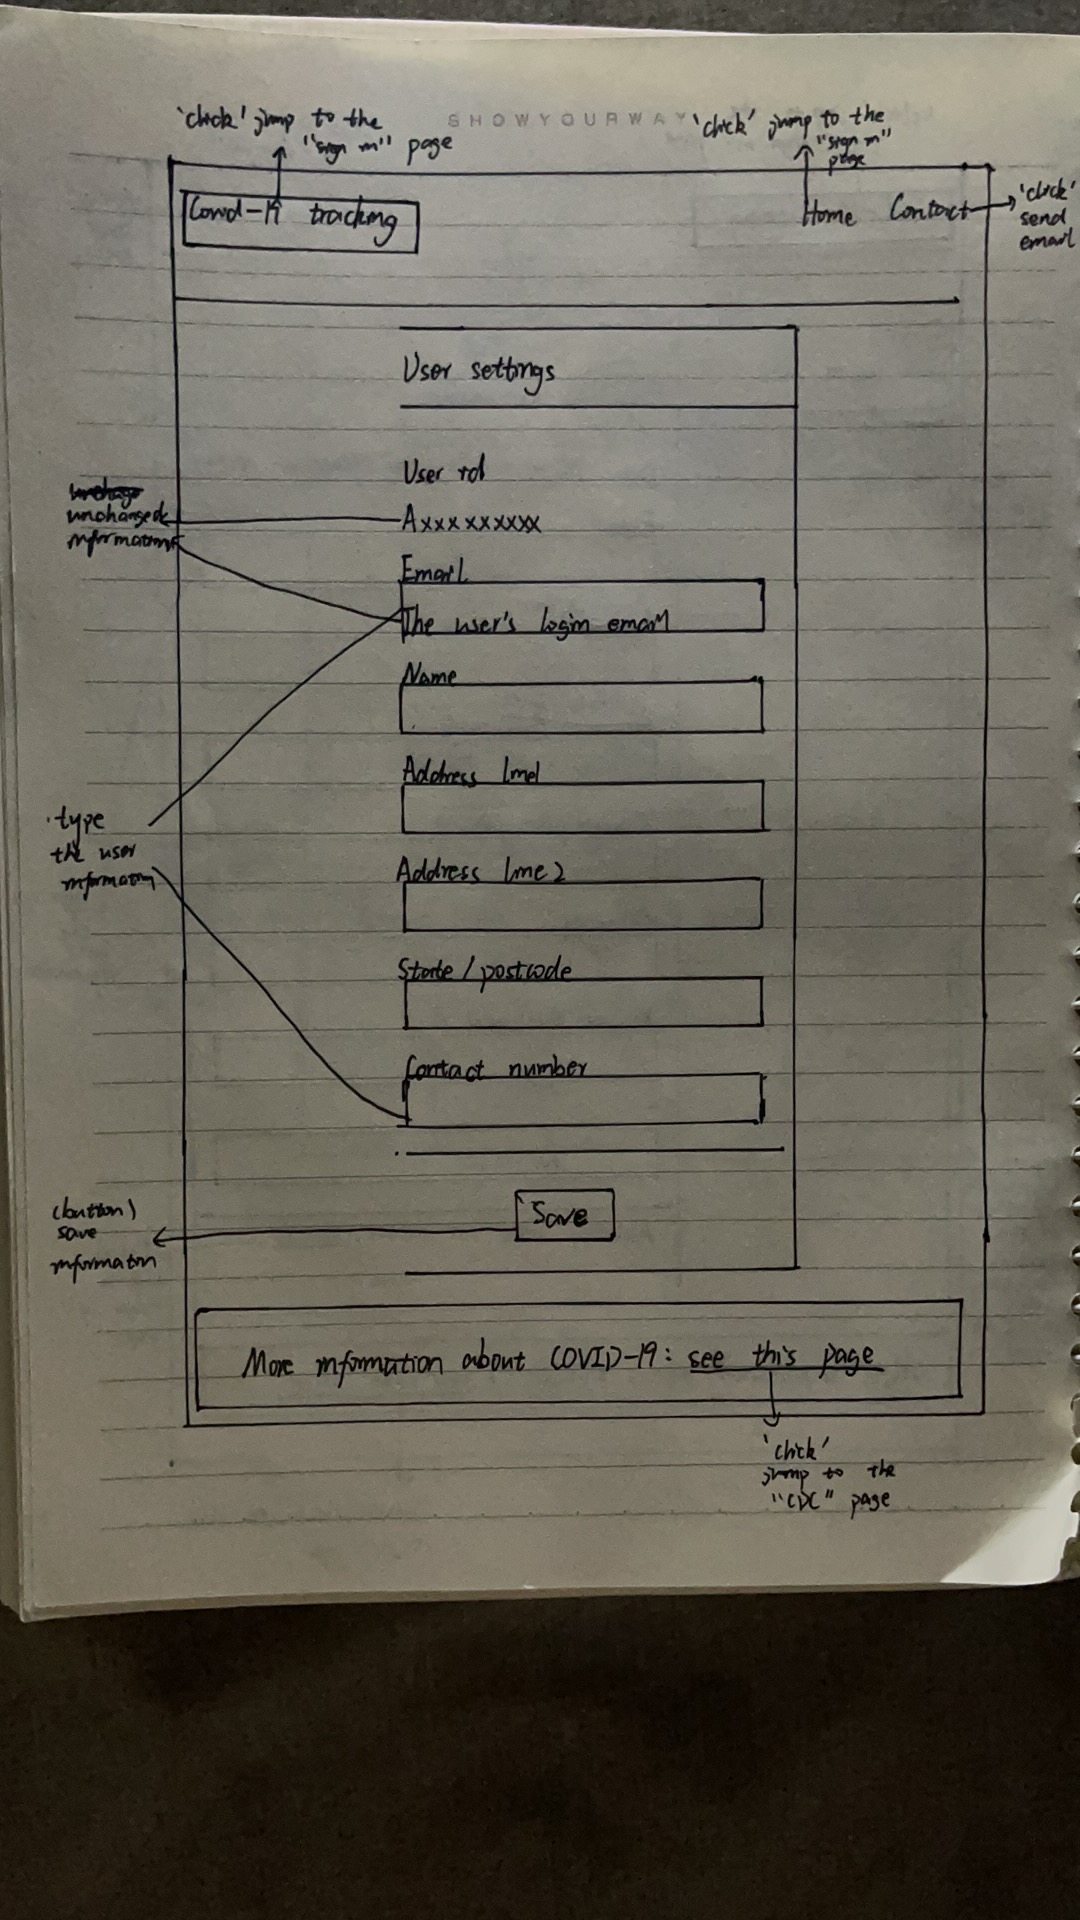 'click' jump to the
"sign in" page
SHOWYOURWAY
'click' jump to the
"sign in"
page
Covid-19 tracking
Home Contact
'click'
send
email
User settings
User id
Axxxxxxxxxx
unchanged
information
Email
The user's login email
Name
Address line1
type
the user
information
Address line2
State / postcode
Contact number
(button)
save
information
Save
More information about COVID-19: see this page
'click'
jump to the
"CDC" page